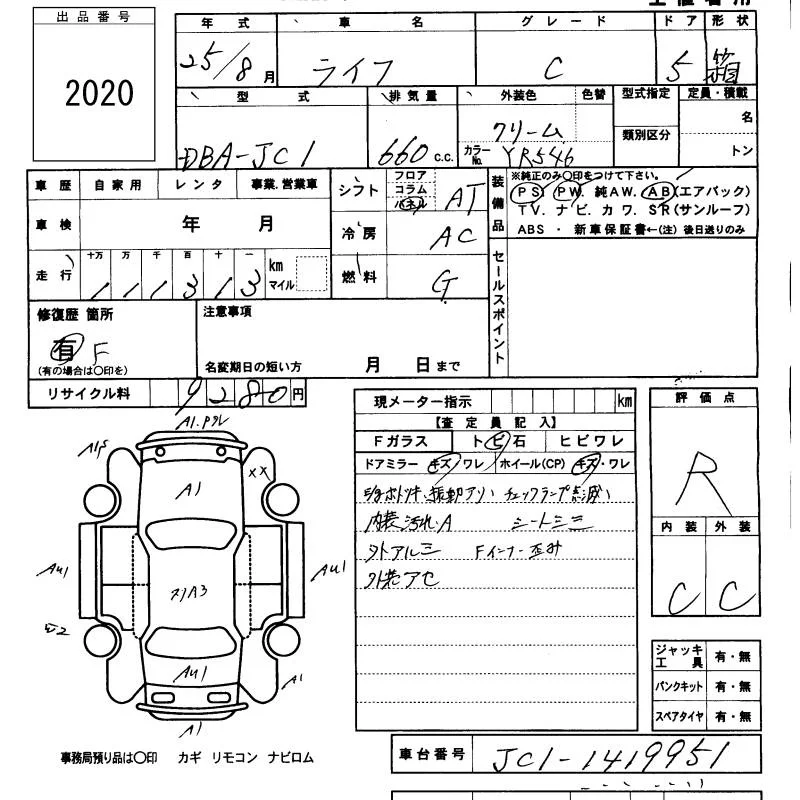 出品番号
2020
年式 車名 グレード ドア 形状
25/8月 ライフ C 5 箱
型式 排気量 外装色 色替 型式指定 定員・積載
DBA-JC1 660 c.c. クリーム 類別区分 名
カラーNo. YR546 トン
車歴 自家用 レンタ 事業.営業車
車検 年 月
走行 十万 万 千 百 十 一 km マイル
1 1 1 3 1 3
シフト フロア コラム パネル AT
冷房 AC
燃料 G
装備品 ※純正のみ○印をつけて下さい。
PS. PW. 純AW. AB(エアバック)
TV. ナビ. カワ. SR(サンルーフ)
ABS ・ 新車保証書←(注) 後日送りのみ
セールスポイント
修復歴 箇所
有 F
(有の場合は○印を)
注意事項
名変期日の短い方 月 日まで
リサイクル料 9280円
現メーター指示 km
【査定員記入】
Fガラス トビ石 ヒビワレ
ドアミラー キズ/ワレ ホイール(CP) キズ・ワレ
チェックランプ点滅
内装汚れ・A シートシミ
外アルミ Fインナー歪み
外装アセ
評価点
R
内装 外装
C C
ジャッキ工具 有・無
パンクキット 有・無
スペアタイヤ 有・無
A1
××
A1
AU1
AU1
A3
AU1
A1
A1
事務局預り品は○印 カギ リモコン ナビロム
車台番号 JC1-1419951